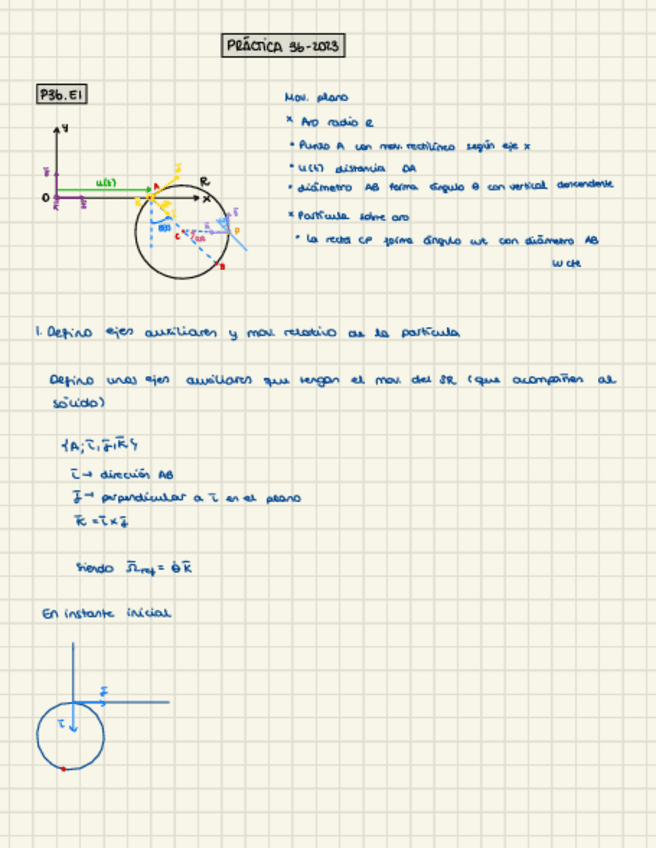 PRÁCTICA 36-2023
P36.E1
Mov. plano
× Aro radio R
• Punto A con mov. rectilíneo según eje x
• u(t) distancia OA
• diámetro AB forma ángulo θ con vertical descendente
× Partícula sobre aro
• La recta CP forma ángulo wt con diámetro AB
w cte
y
u(t)
A
R
O
x
θ(t)
C
P
B
1. Defino ejes auxiliares y mov. relativo de la partícula
Defino unos ejes auxiliares que tengan el mov. del SR (que acompañen al
sólido)
{A; ī, j̄, k̄}
ī → dirección AB
j̄ → perpendicular a ī en el plano
k̄ = ī x j̄
Siendo Ω̄ref = θ̇ k̄
En instante inicial
j̄
ī